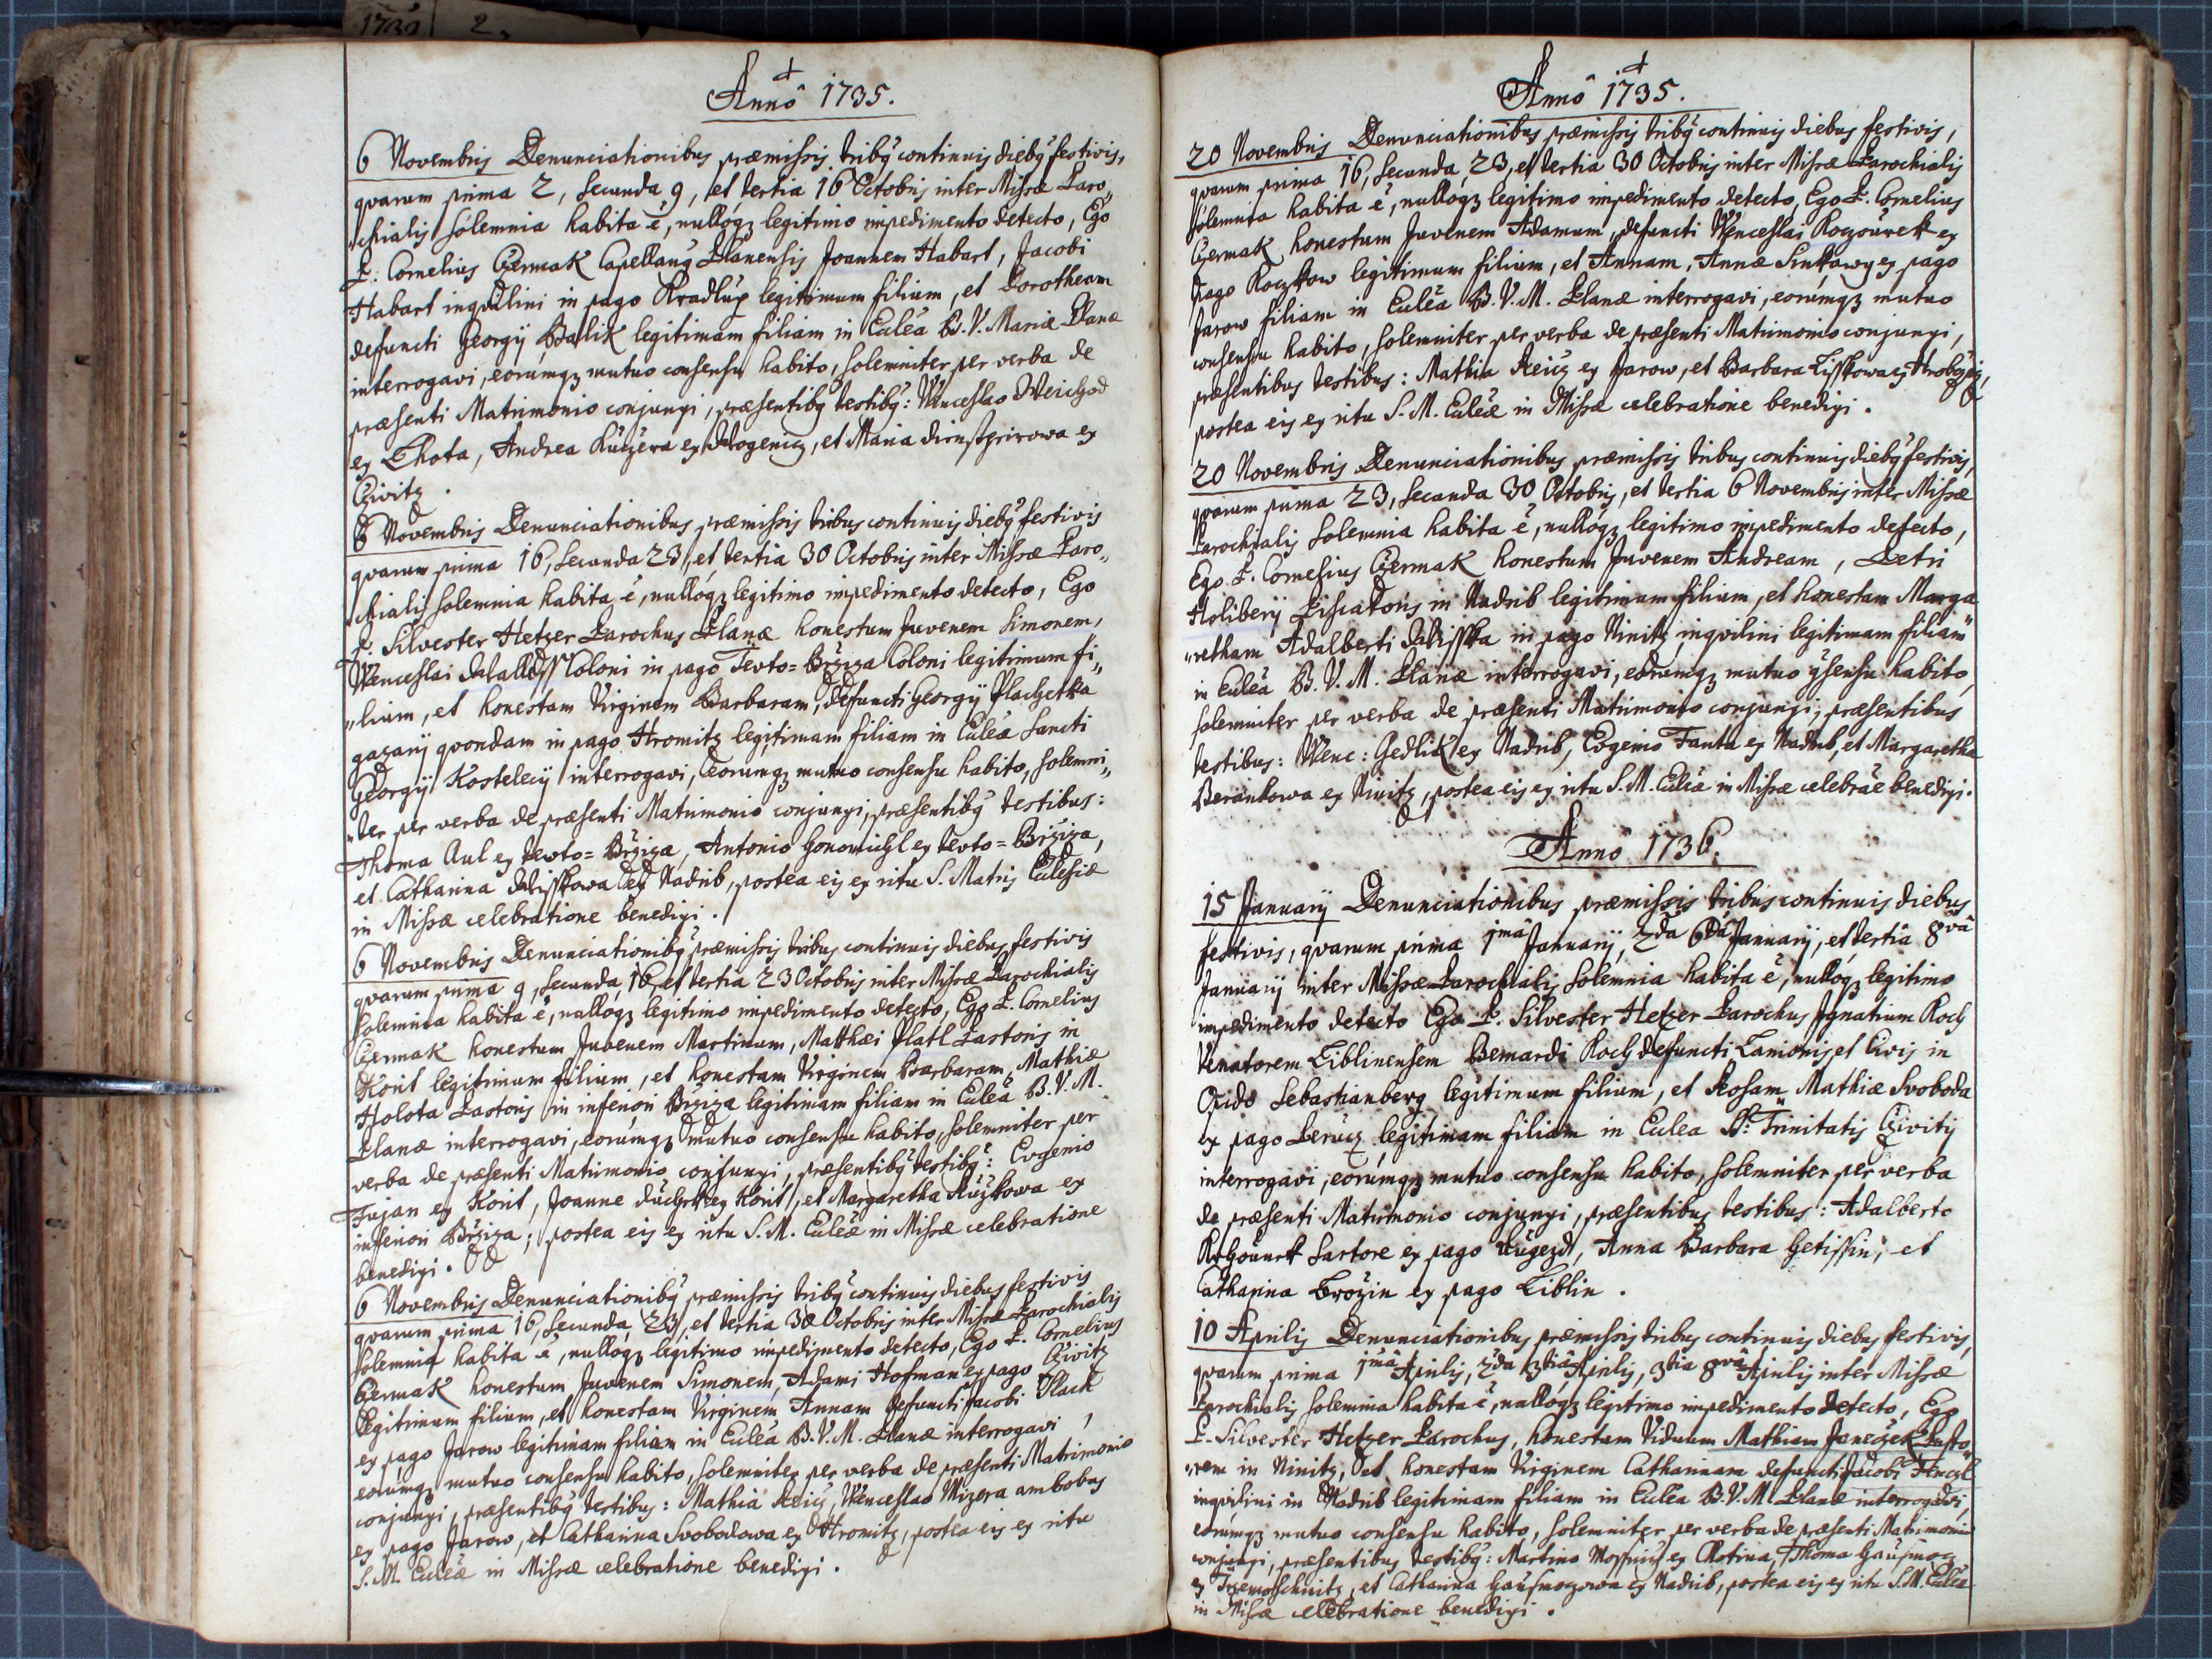 1732 2
Annô 1735.
6 Novembris Denunciationibus præmissis tribq continuis diebq festivis,
quarum prima 2, secunda 9, et tertia 16 Octobris inter Missæ Paro„
„chialis solemnia habita ē, nullóqȝ legitimo impedimento detecto, Ego
P: Cornelius Czermak Capellang Planensis Joannem Habart, Jacobi
Habart inquilini in pago Kradlup legitimum filium, et Dorotheam
defuncti Georgij Balik legitimam filiam in Eccleā B. V. Mariæ Planæ
interrogavi, eorúmqȝ mutuo consensu habito, solemniter per verba de
præsenti Matrimonio conjunxi, præsentibq testibq: Wenceslao
ex Lhota, Andrea Kučzera ex et Maria ex
Cživitz.
6 Novembris Denunciationibus præmissis tribus continuis diebq festivis
quarum prima 16, secunda 23, et tertia 30 Octobris inter Missæ Paro„
„chialis solemnia habita ē, nullóqȝ legitimo impedimento detecto, Ego
P. Silvester Hetzer Parochus Planæ honestum Juvenem Simonem,
Wenceslai Coloni in pago Tevto=Bržiza Coloni legitimum fi„
„lium, et honestam Virginem Barbaram, defuncti Georgij Plachetka
gazarij quondam in pago Hromitz legitimam filiam in Eccleā Sancti
Georgij Kostelecij interrogavi, eorumqȝ mutuo consensu habito, solemni„
„ter per verba de præsenti Matrimonio conjunxi, præsentibq testibus:
Thoma Aul ex tevto=Bržiza, Antonio ex tevto=Bržiza,
et Catharina Wisskowa ex Nadrib, postea eis ex ritu S. Matris Ecclesiæ
in Missæ celebratione benedixi.
6 Novembris Denunciationibq præmissis tribus continuis diebus festivis
quarum prima 9, secunda 16, et tertia 23 Octobris inter Missæ Parochialis
solemnia habita ē, nullóqȝ legitimo impedimento detecto, Ego P. Cornelius
Czermak honestum Juvenem Martinum, Matthæi Platl Pastoris in
Korit legitimum filium, et honestam Virginem Barbaram, Mathiæ
Holota Pastoris in inferiori Bržiza legitimam filiam in Eccleā B. V. M.
Planæ interrogavi, eorúmqȝ mutuo consensu habito, solemniter per
verba de præsenti Matrimonio conjunxi, præsentibq testibq: Evgenio
Fujan ex Korit, Joanne ex Korit, et Margaretha Ružkowa ex
inferiori Bržiza; postea eis ex ritu S. M. Eccleæ in Missæ celebratione
benedixi.
6 Novembris Denunciationibq præmissis tribq continuis diebus festivis
quarum prima 16, secunda 23, et tertia 30 Octobris inter Missæ Parochialis
solemnia habita ē, nullóqȝ legitimo impedimento detecto, Ego P. Cornelius
Czermak honestum Juvenem Simonem, Adami Hofman ex pago Cživitz
legitimum filium, et honestam Virginem Annam defuncti Jacobi Vlack
ex pago Jarow legitimam filiam in Eccleā B. V. M. Planæ interrogavi,
eorúmqȝ mutuo consensu habito, solemniter per verba de præsenti Matrimonio
conjunxi, præsentibq testibus: Mathia Reicz, Wenceslao Mizera ambobus
ex pago Jarow, et Catharina Svobodowa ex Hromitz, postea eis ex ritu
S. M. Eccleæ in Missæ celebratione benedixi.
Annô 1735.
20 Novembris Denunciationibus præmissis tribq continuis diebus festivis,
quarum prima 16, secunda 23, et tertia 30 Octobris inter Missæ Parochialis
solemnia habita ē, nullóqȝ legitimo impedimento detecto, Ego P. Cornelius
Czermak honestum Juvenem Adamum, defuncti Wenceslai Koczourek ex
pago Koczkow legitimum filium, et Annam, Annæ ex pago
Jarow filiam in Eccleā B. V. M. Planæ interrogavi, eorúmqȝ mutuo
consensu habito, solemniter per verba de præsenti Matrimonio conjunxi,
præsentibus testibus: Mathia Reicz ex Jarow, et Barbara Lisskowa ex
postea eis ex ritu S. M. Eccleæ in Missæ celebratione benedixi.
20 Novembris Denunciationibus præmissis tribus continuis diebq festivis,
quarum prima 23, secunda 30 Octobris, et tertia 6 Novembris inter Missæ
Parochialis solemnia habita ē, nullóqȝ legitimo impedimento detecto,
Ego P. Cornelius Czermak honestum Juvenem Andream, Petri
Holiberij Piscatoris in Nadrib legitimum filium, et honestam Marga
„retham Adalberti Wisska in pago Ninitz inquilini legitimam filiam
in Eccleā B. V. M. Planæ interrogavi, eorúmqȝ mutuo gsensu habito,
solemniter per verba de præsenti Matrimonio conjunxi, præsentibus
testibus: Wenc: Gedlik ex Nadrib, Evgenio Fanta ex Nadrib, et Margaretha
Berankowa ex Ninitz, postea eis ex ritu S. M. Eccleæ in Missæ celebrāē benedixi.
Annô 1736.
15 Januarij Denunciationibus præmissis tribus continuis diebus
festivis, quarum prima 1mâ Januarij, 2dâ 6tâ Januarij, et tertia 8vâ
Januarij inter Missæ Parochialis solemnia habita ē, nullóqȝ legitimo
impedimento detecto Ego P. Silvester Hetzer Parochus Ignatium Koch
Venatorem Liblinensem Bernardi Koch defuncti Lanionis et Civis in
Opido Sebastianberg legitimum filium, et Rosam Mathiæ Svoboda
ex pago legitimam filiam in Ecclea SS: Trinitatis Cživitij
interrogavi, eorúmqȝ mutuo consensu habito, solemniter per verba
de præsenti Matrimonio conjunxi, præsentibus testibus: Adalberto
Sartore ex pago Augezd, Anna Barbara Getissin, et
Catharina Brožin ex pago Liblin.
10 Aprilis Denunciationibus præmissis tribus continuis diebus festivis,
quarum prima 1mâ Aprilis, 2da 3tiâ Aprilis, 3tia 8vâ Aprilis inter Missæ
Parochialis solemnia habita ē, nullóqȝ legitimo impedimento detecto, Ego
P. Silvester Hetzer Parochus, honestum Viduum Mathiam Janeczek Pasto„
„rem in Ninitz, et honestam Virginem Catharinam defuncti Jacobi
inquilini in Nadrib legitimam filiam in Eccleā B. V. M. Planæ interrogavi,
eorúmqȝ mutuo consensu habito, solemniter per verba de præsenti Matrimonio
conjunxi, præsentibus testibq: Martino ex Chotina, Thoma
ex Trzemoschnitz, et Catharina ex Nadrib, postea eis ex ritu S. M. Eccleæ
in Missæ celebratione benedixi.